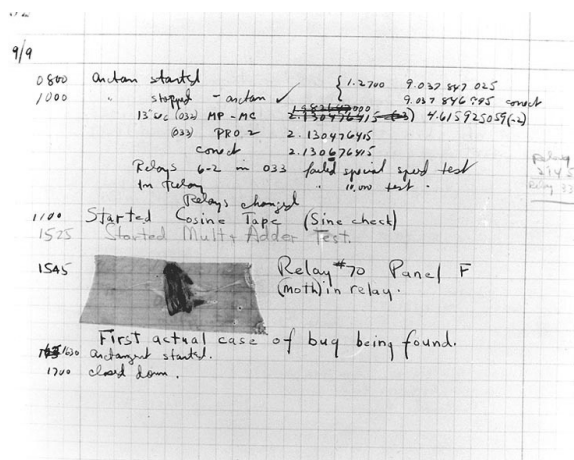 9/9
0800 Antan started { 1.2700 9.037 847 025
1000 " stopped - antan ✓ 9.037 846 995 conect
13"uc (032) MP-MC 2.130476415 4.615925059(-2)
(033) PRO 2 2.130476415
conect 2.130676415
Relays 6-2 in 033 failed special speed test
In Relay " 10,000 test.
Relays changed
Relay
2145
Relay 33
1100 Started Cosine Tape (Sine check)
1525 Started Mult + Adder Test.
1545 Relay #70 Panel F
(moth) in relay.
First actual case of bug being found.
1630 antangent started.
1700 closed down.